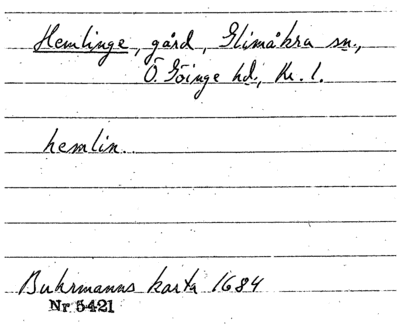 Hemlinge, gård, Glimåkra sn.,
Ö. Göinge hd., Kr. l.
hemlin.
Buhrmanns karta 1684
Nr. 5421